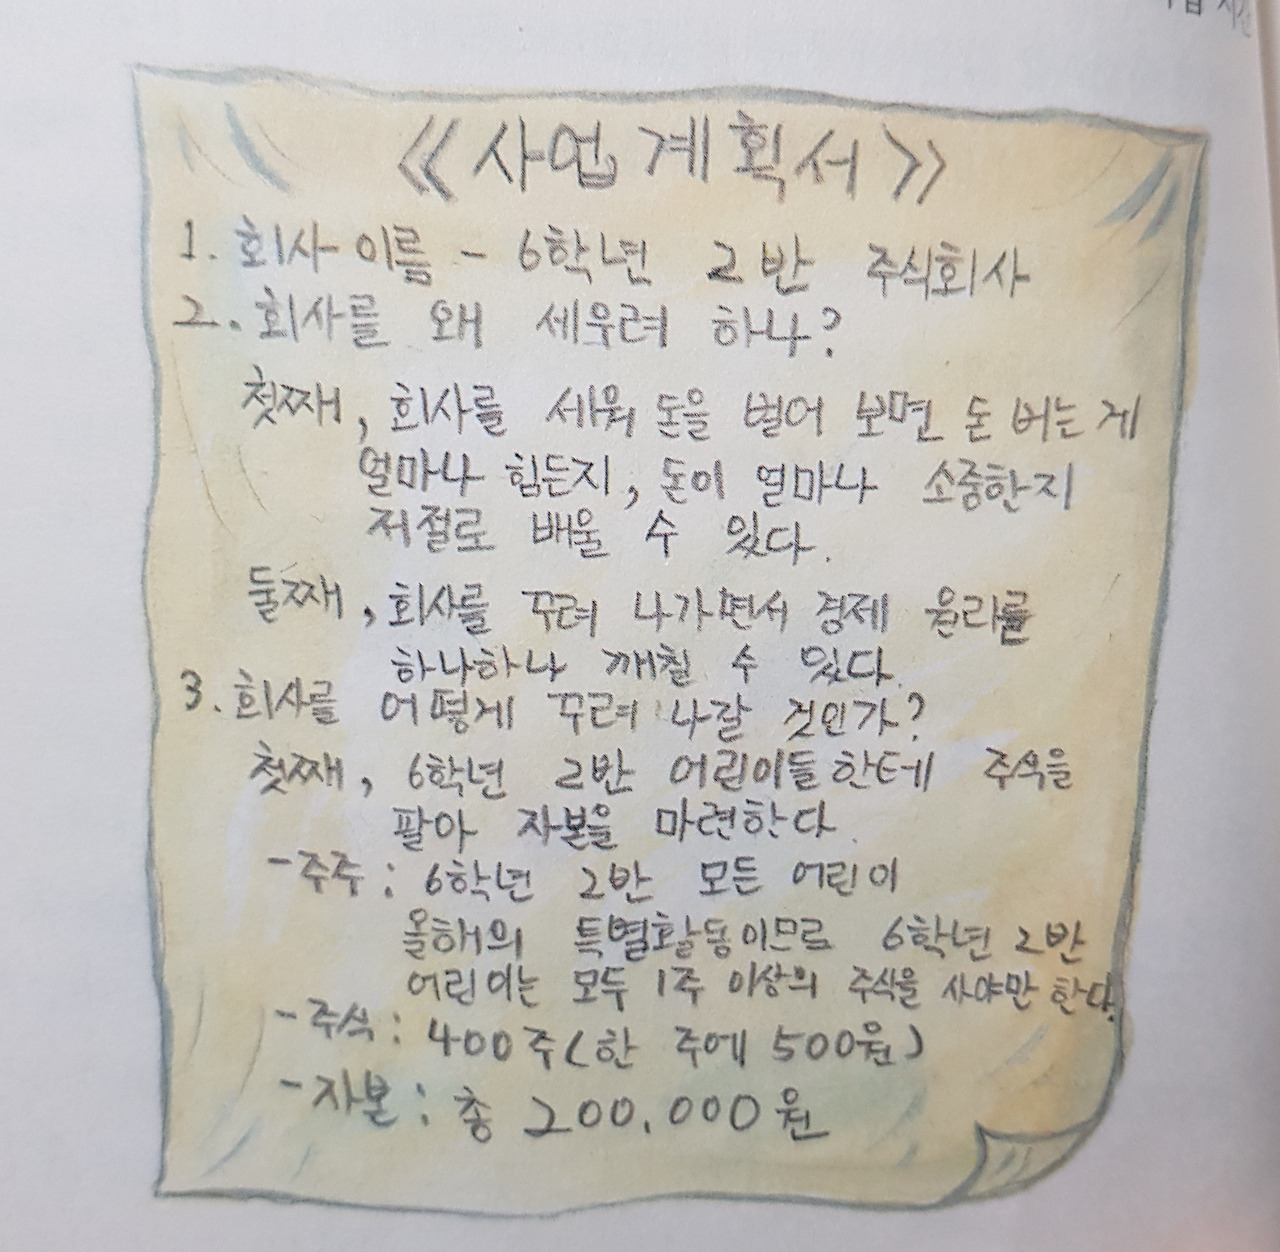 《사업계획서》
1. 회사 이름 - 6학년 2반 주식회사
2. 회사를 왜 세우려 하나?
첫째, 회사를 세워 돈을 벌어 보면 돈 버는 게
얼마나 힘든지, 돈이 얼마나 소중한지
저절로 배울 수 있다.
둘째, 회사를 꾸려 나가면서 경제 원리를
하나하나 깨칠 수 있다.
3. 회사를 어떻게 꾸려 나갈 것인가?
첫째, 6학년 2반 어린이들한테 주식을
팔아 자본을 마련한다.
- 주주 : 6학년 2반 모든 어린이
올해의 특별활동이므로 6학년 2반
어린이는 모두 1주 이상의 주식을 사야만 한다.
- 주식 : 400주(한 주에 500원)
- 자본 : 총 200,000원